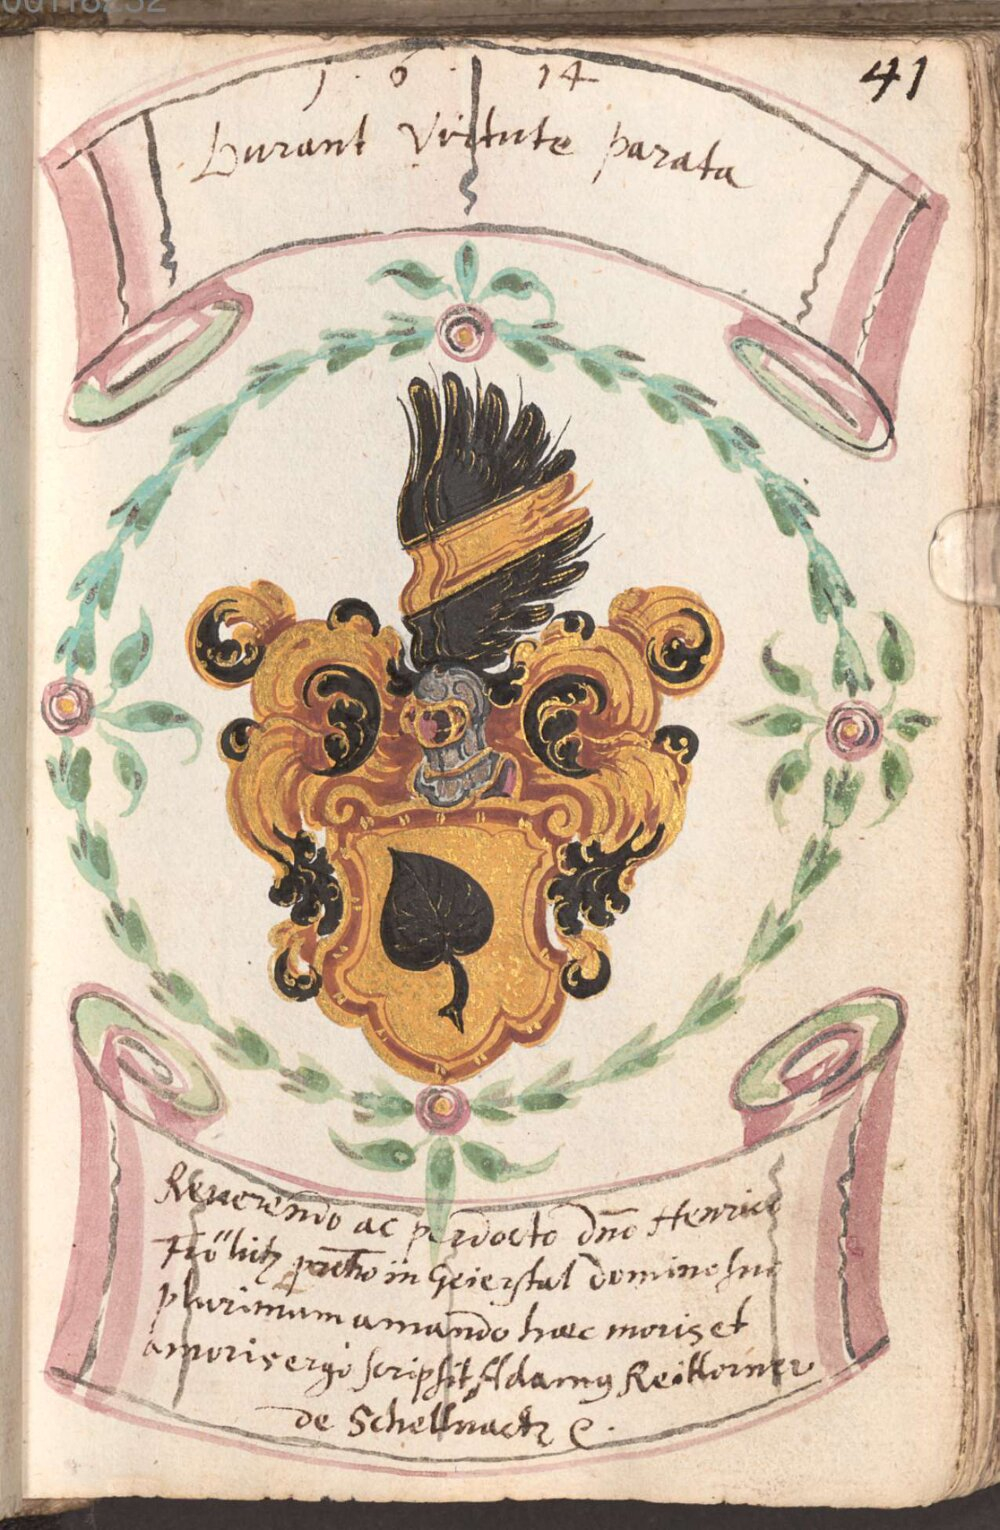 00118232
41
1 . 6 . 14
Durant Virtute parata
Reuerendo ac perdocto dño Henrico
Frölich in Geierstal domino suo
plurimum amando haec moris et
amoris ergo scripsit Adamus Reikorner
de Schellnactz